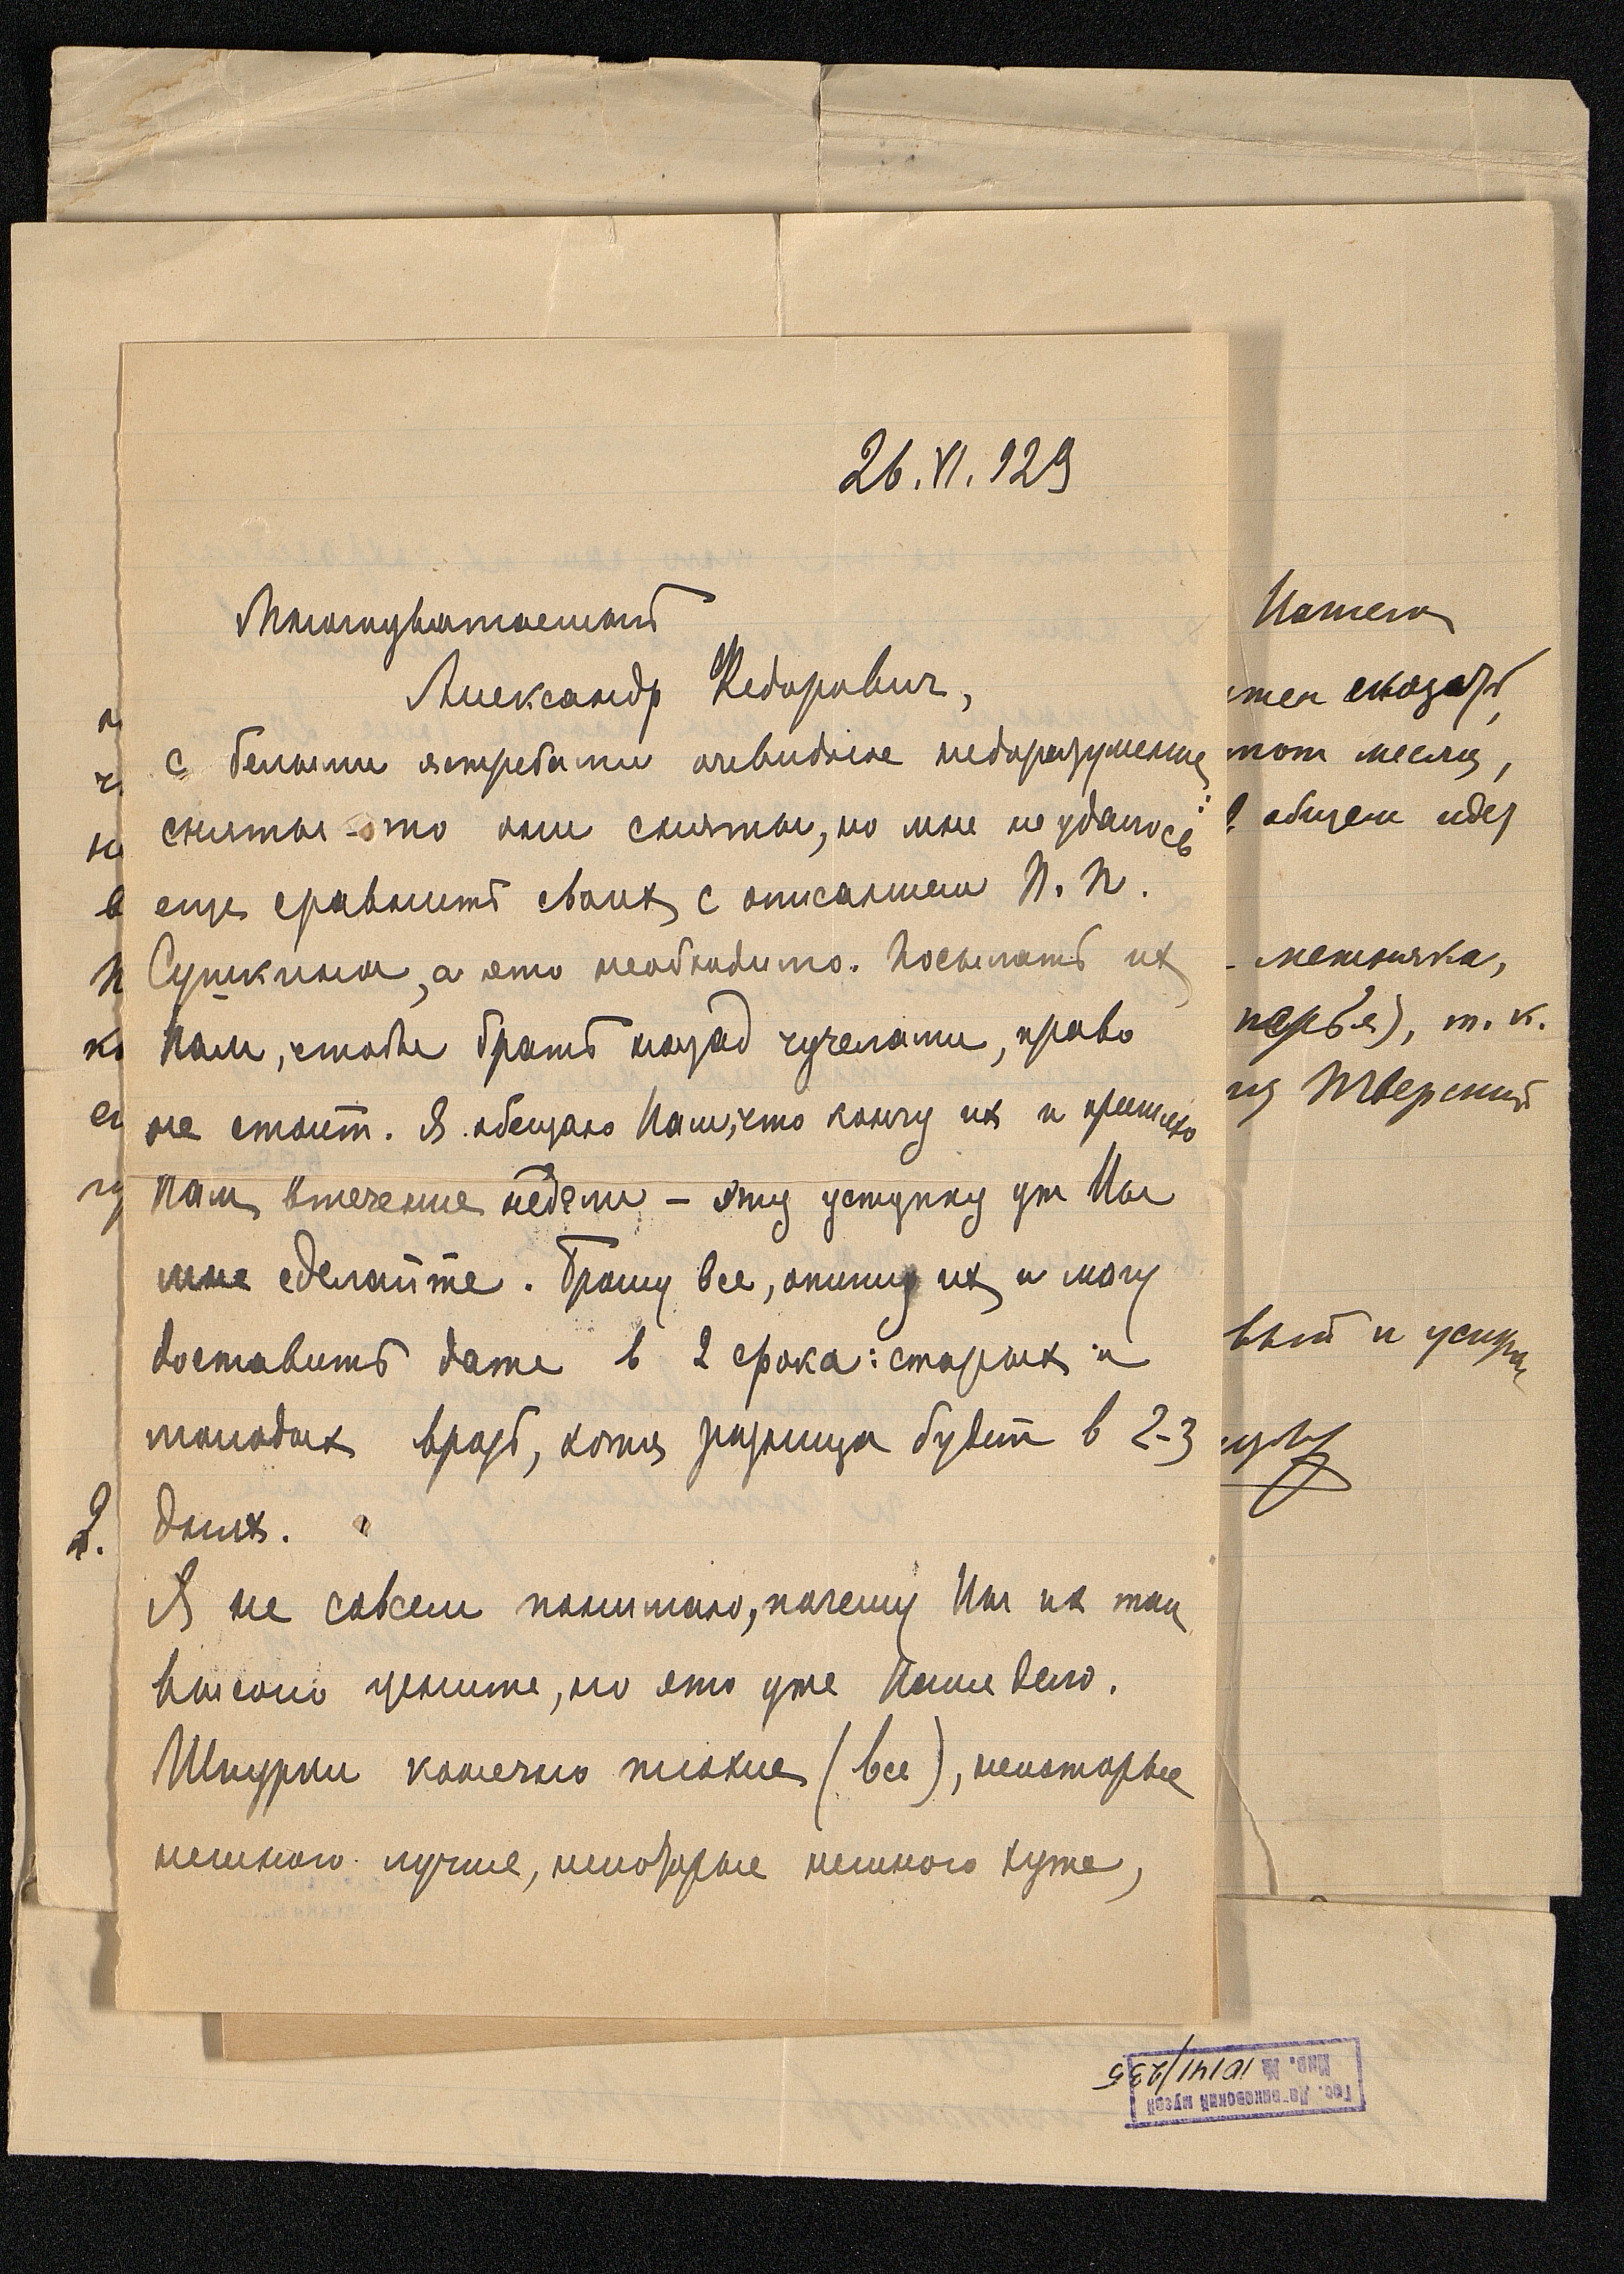 26.VI.929
Многоуважаемый
Александр Федорович,
с белыми ястребами очевидное недоразумение:
сняты-то они сняты, но мне не удалось
еще сравнить своих с описанием П. П.
Сушкина, а это необходимо. Посылать их
Вам, чтобы брать назад чучелами, право
не стоит. Я обещаю Вам, что кончу их и пришлю
Вам втечение недели – эту уступку уж Вы
мне сделайте. Брошу все, опишу их и могу
доставить даже в 2 срока: старых и
молодых врозь, хотя разница будет в 2-3
днях.
Я не совсем понимаю, почему Вы их так
высоко цените, но это уже Ваше дело.
Шкурки конечно плохие (все), некоторые
немного лучше, некоторые немного хуже,
Вашего
сказать,
этот месяц,
В общем идея
метняка,
перья), т. к.
Тверский
вый и
2.
Гос. Дарвиновский музей
Инв. № 10141/235